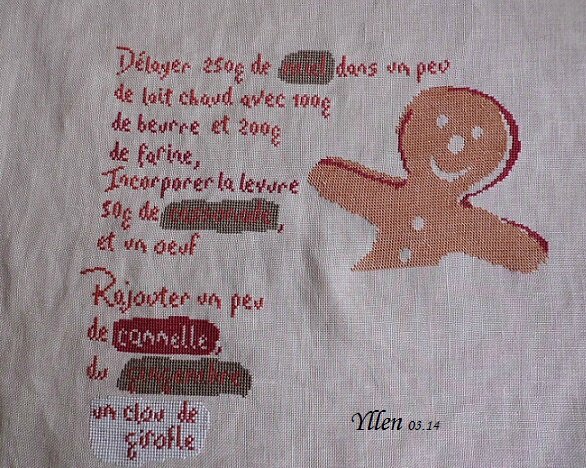 Délayer 250g de miel dans un peu
de lait chaud avec 100g
de beurre et 200g
de farine,
Incorporer la levure
50g de
et un oeuf
Rajouter un peu
de cannelle,
du gingembre
un clou de
girofle
Yllen 03.14